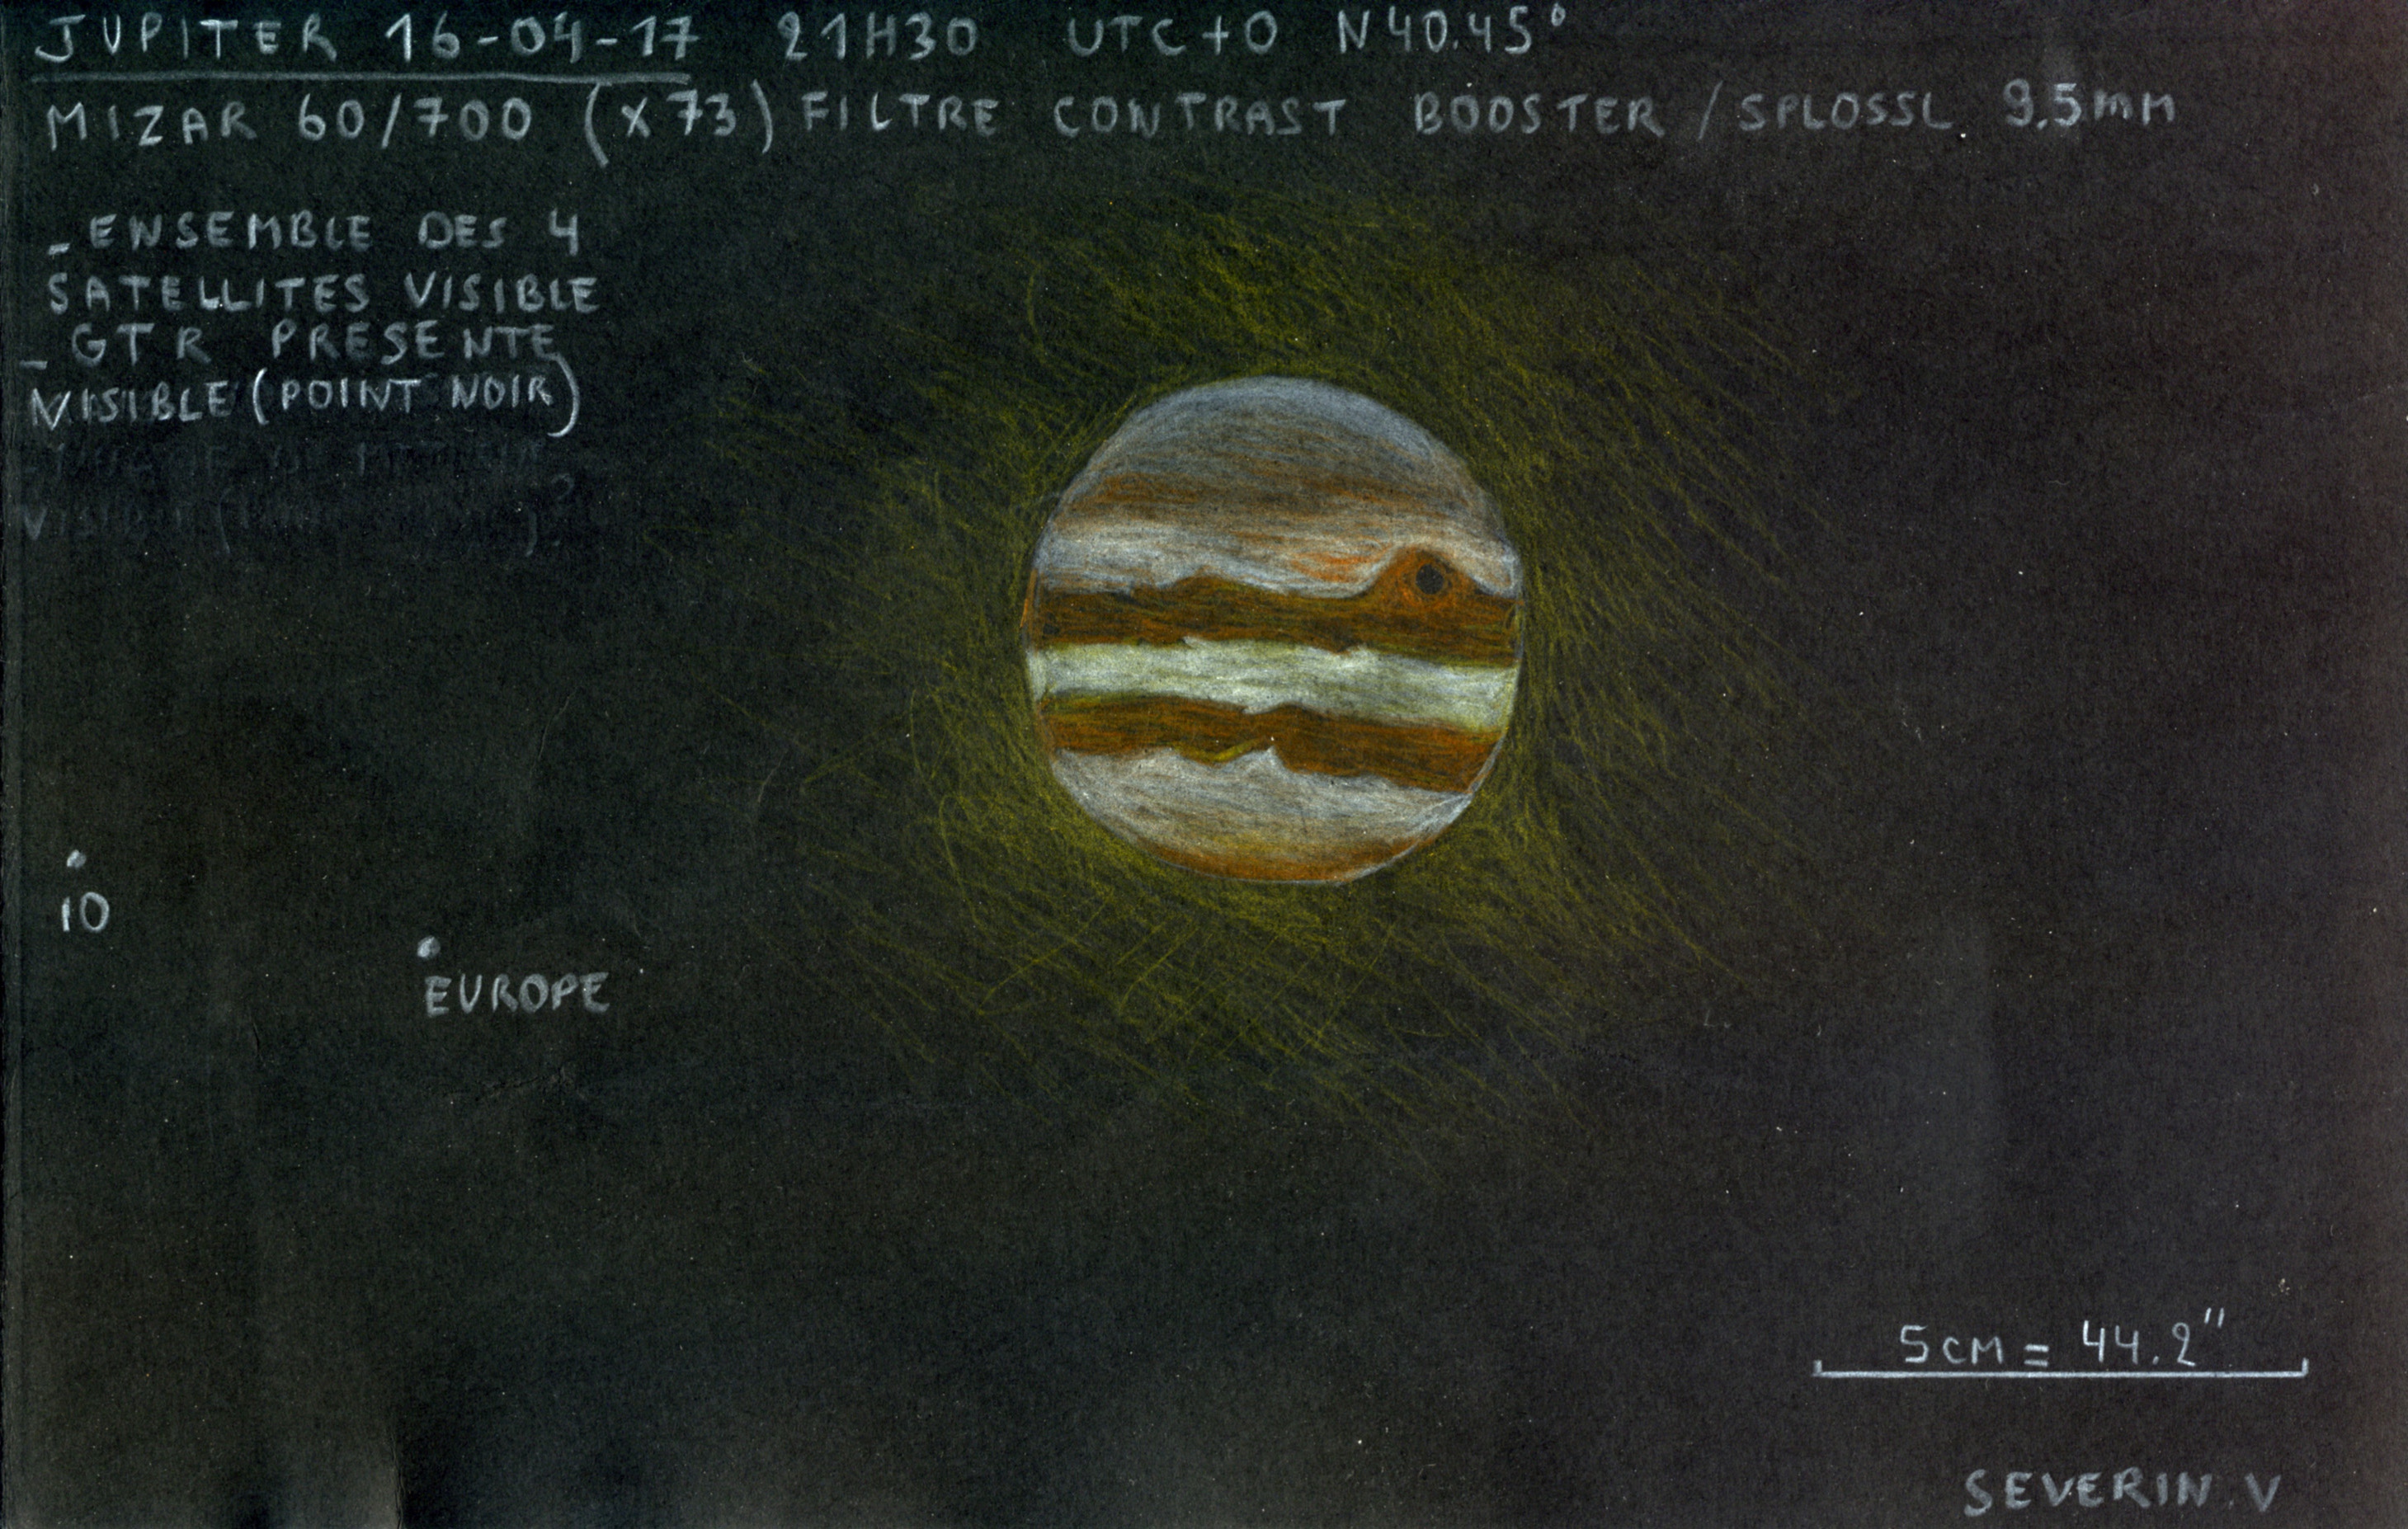 JUPITER 16-04-17 21H30 UTC+0 N40.45°
MIZAR 60/700 (X73) FILTRE CONTRAST BOOSTER / SPLOSSL 9.5mm
_ENSEMBLE DES 4
SATELLITES VISIBLE
_GTR PRESENTE
VISIBLE (POINT NOIR)
IO
EUROPE
5CM = 44.2"
SEVERIN.V